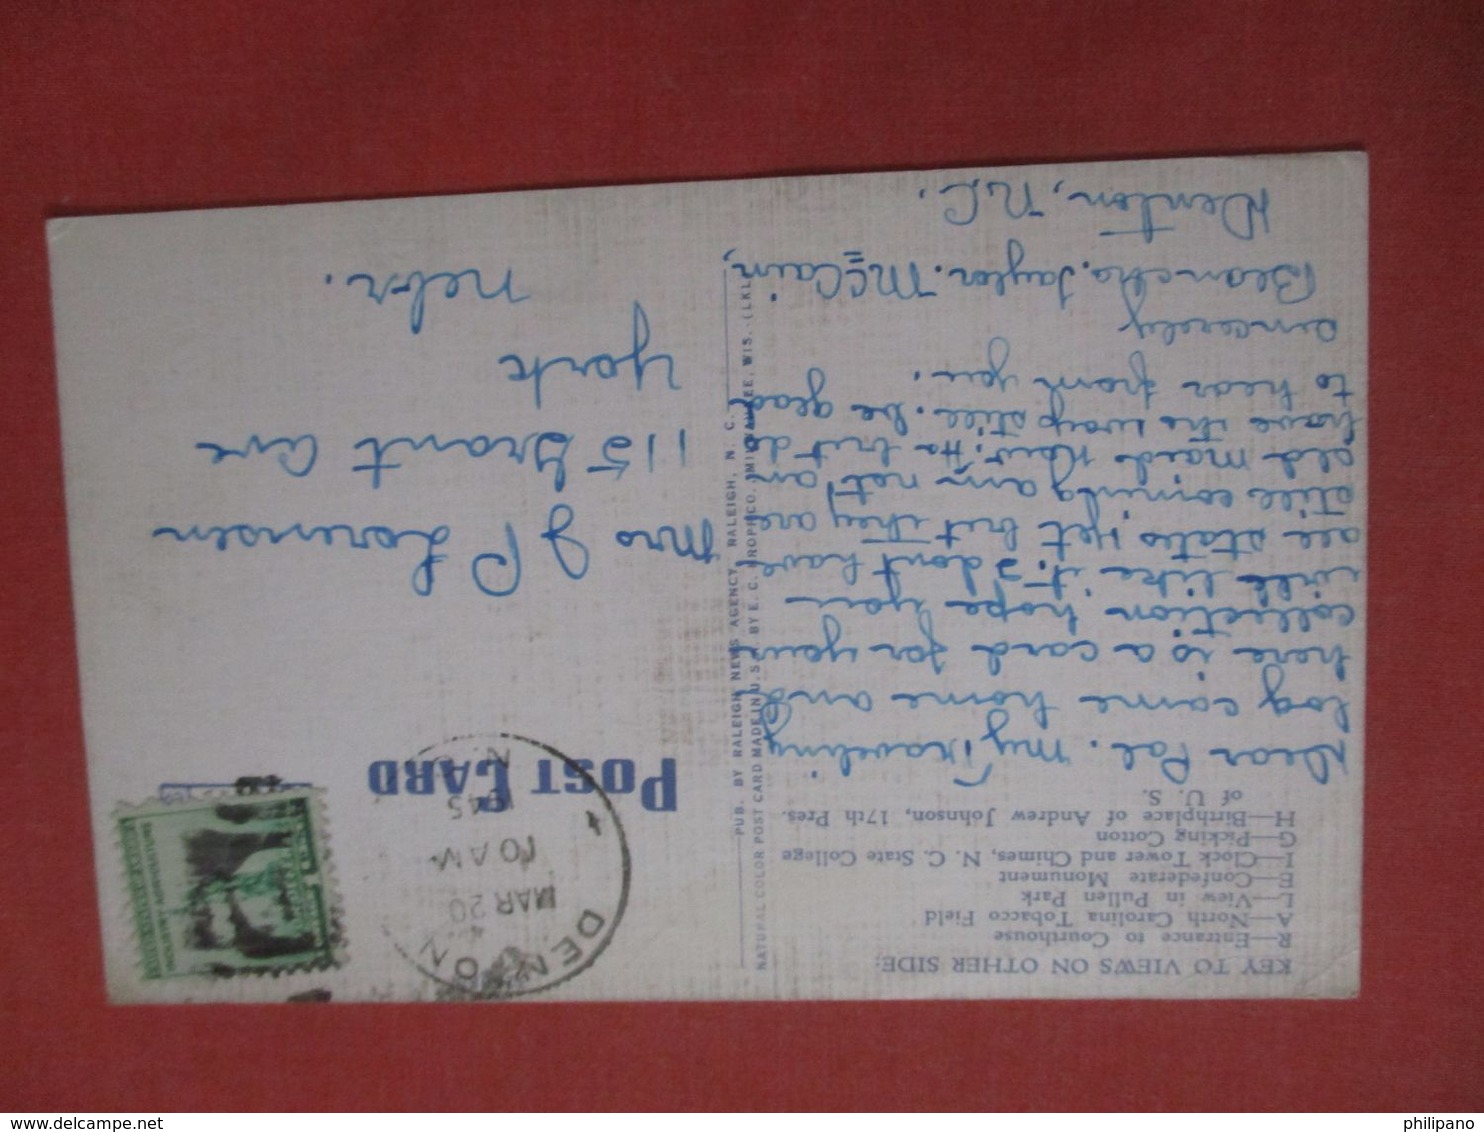 KEY TO VIEWS ON OTHER SIDE:
R—Entrance to Courthouse
A—North Carolina Tobacco Field
L—View in Pullen Park
E—Confederate Monument
I—Clock Tower and Chimes, N. C. State College
G—Picking Cotton
H—Birthplace of Andrew Johnson, 17th Pres.
of U. S.
Dear Pal. My Traveling
log came home and
here is a card for your
collection hope you
will like it. I dont have
all states yet but they are
still coming am not an
old maid now. Ha but do
have the warp still. be glad
to hear from you.
Sincerely
Taylor. McCain,
Denton, N.C.
PUB. BY RALEIGH NEWS AGENCY, RALEIGH, N. C.
NATURAL COLOR POST CARD MADE IN U.S.A. BY E. C. KROPP CO., MILWAUKEE, WIS.-(LKL)
POST CARD
DENTON
MAR 20
10 AM
1945
N.C.
Mrs J P Lorensen
115 Grant Ave
York
Nebr.
delcampe.net
philipano